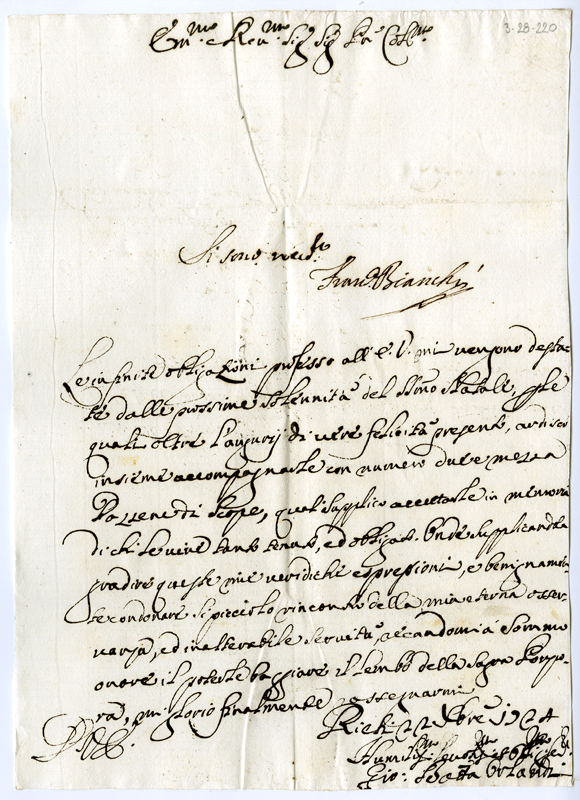 3-28-220
Em.mo e Reu.mo Sig.r Sig.r Pro.n Col.mo
Si sono riced.te
Fran.co Bianchi
Le infinite obligazioni professo all'E.V. mi vengono desta=
te dalle prossime solennità del SSmo Natale, p le
quali oltre l'augurij di vere felicità presento, ardisco
insieme accompagnarle con numero due mezza
di scope, quali supplico accettarle in memoria
di chi le vive tanto tenuto, ed obligato. Onde supplicandola
gradire queste mie veridiche espressioni, e benignamen=
te condonare si picciolo rincontro della mia eterna osser=
vanza, ed inalterabile servitù, recandomi à sommo
onore il poterle baggiare il lembo della sagra Porpo=
ra, mi glorio finalmente rassegnarmi
D.V.E. Rieti 22 Xbre 1724
Humiliss.mo
Gio: Batta Orlandi